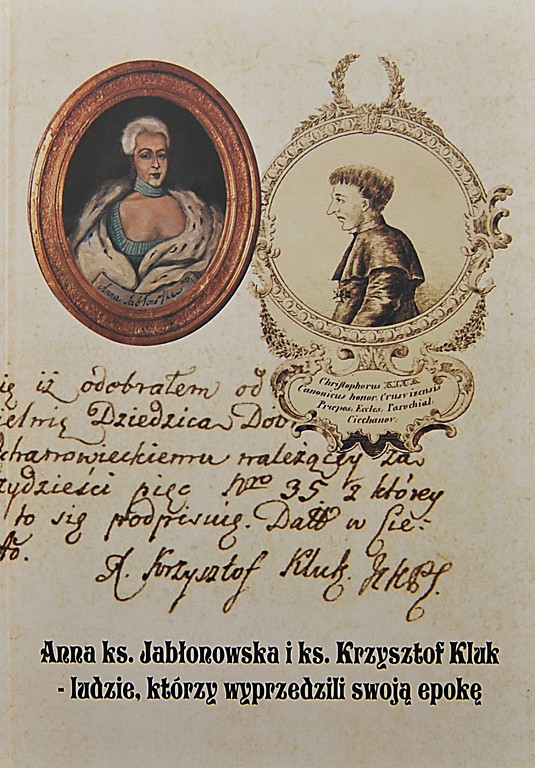 Anna Jabłonowska
Chriſtophorus KLUK
Canonicus honor. Crusvicensis
Præpos. Eccles. Parochial.
Ciechanov.
ię iż odobrałem od
Dziedzica Dob
należący za
rzydzieści pięc Nro 35 z którey
to się podpisuię. Datt w Cie-
X. Krzysztof Kluk
Anna ks. Jabłonowska i ks. Krzysztof Kluk
- ludzie, którzy wyprzedzili swoją epokę